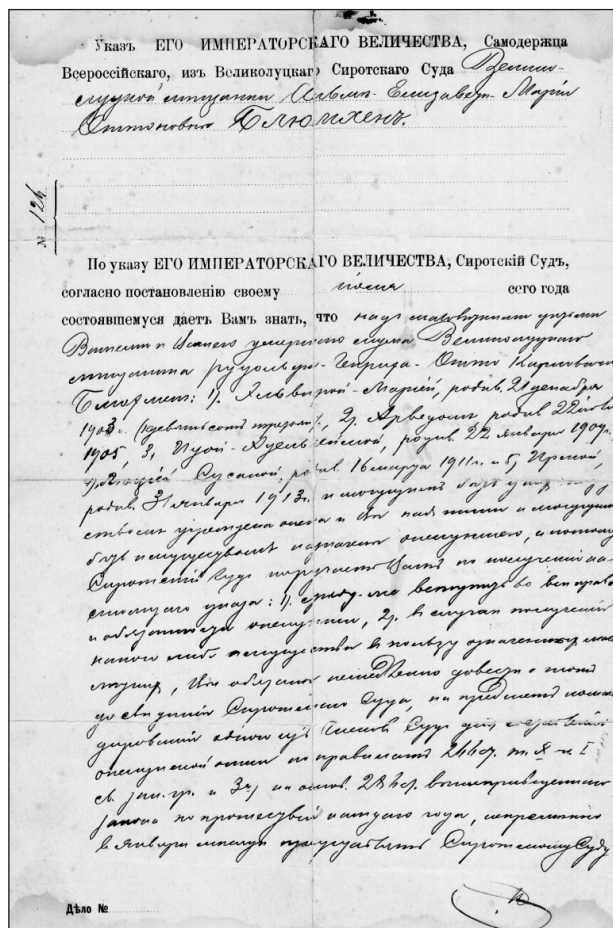 Указъ ЕГО ИМПЕРАТОРСКАГО ВЕЛИЧЕСТВА, Самодержца
Всероссійскаго, изъ Великолуцкаго Сиротскаго Суда Велико-
луцкой мѣщанкѣ Елизаветѣ Маріи
Оттоновнѣ Блюмхенъ.
№ 124
По указу ЕГО ИМПЕРАТОРСКАГО ВЕЛИЧЕСТВА, Сиротскій Судъ,
согласно постановленію своему сего года
состоявшемуся даетъ Вамъ знать, что надъ малолѣтними дѣтьми
Вашими и Вашего умершаго мужа Великолуцкаго
мѣщанина Рудольфа-Генриха-Отто Карловича
Блюмхенъ: 1, Эльвирой-Маріей, родив. 21 декабря
1903 г. 2, Арведомъ родив 22
1905 3, Идой родив. 22 января 1909 г.
Сусаной, родив. 16 марта 1911 г. и 5, Ирмой,
родив. 31 января 1913 г. и могущимъ быть
учреждена опека и Вы надъ ними и могущимъ
быть имуществомъ назначены опекуншею, а потому
Сиротскій Судъ поручаетъ Вамъ по полученіи на-
стоящаго указа: 1, вступить во всѣ права
и обязанности опекунши, 2, въ случаѣ полученія
какого либо имущества въ пользу означенныхъ мало-
лѣтнихъ, Вы обязаны немедленно довести о томъ
до свѣдѣнія Сиротскаго Суда, на предметъ
одного изъ членовъ Суда для составленія
опекунской описи по правиламъ 266 ст. т. X ч. I
св. зак. гр. и 3, на основ. 286 ст.
закона по прошествіи каждаго года, непремѣнно
въ Январѣ мѣсяцѣ представлять Сиротскому Суду
Дѣло №